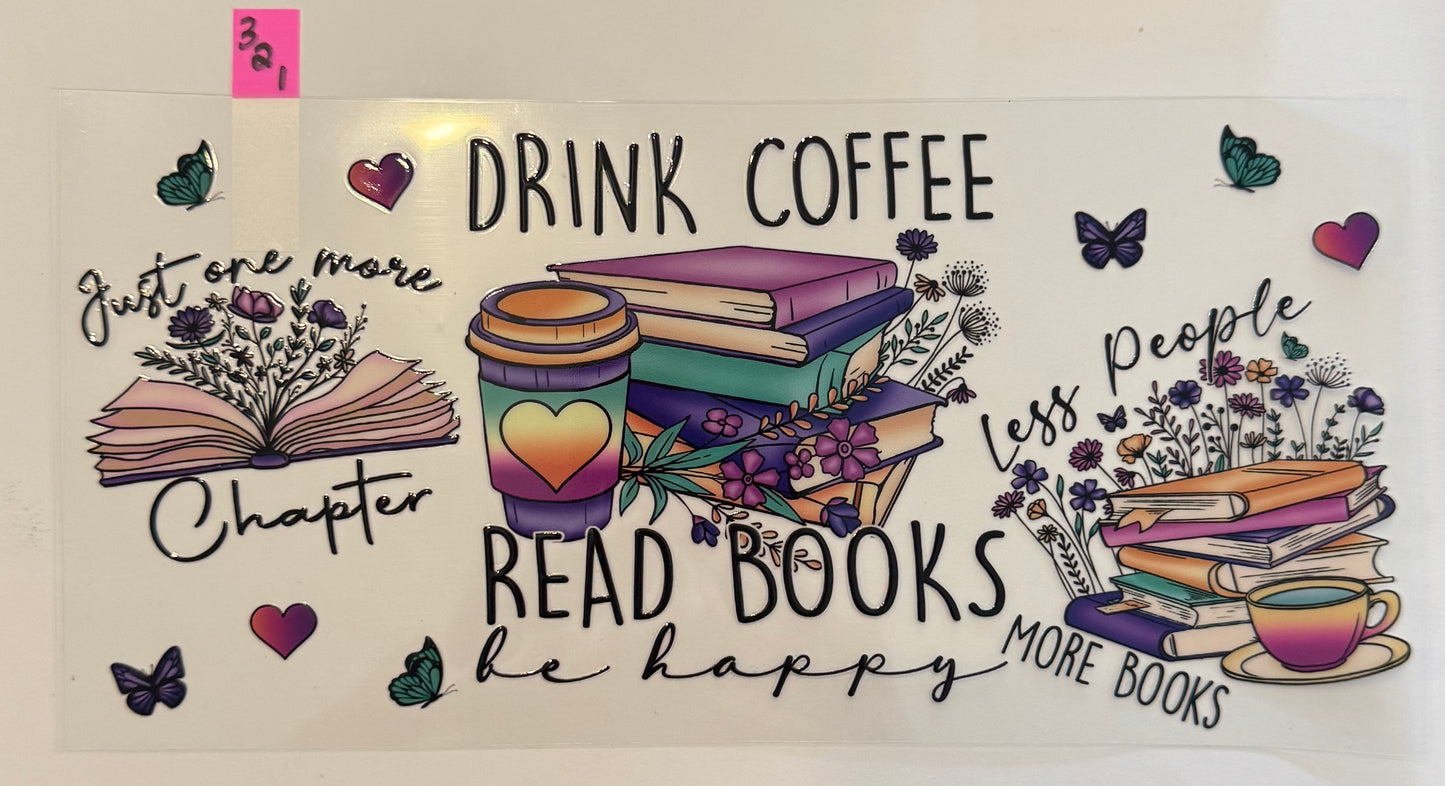 3
2
1
Just one more
Chapter
DRINK COFFEE
READ BOOKS
be happy
Less People
MORE BOOKS